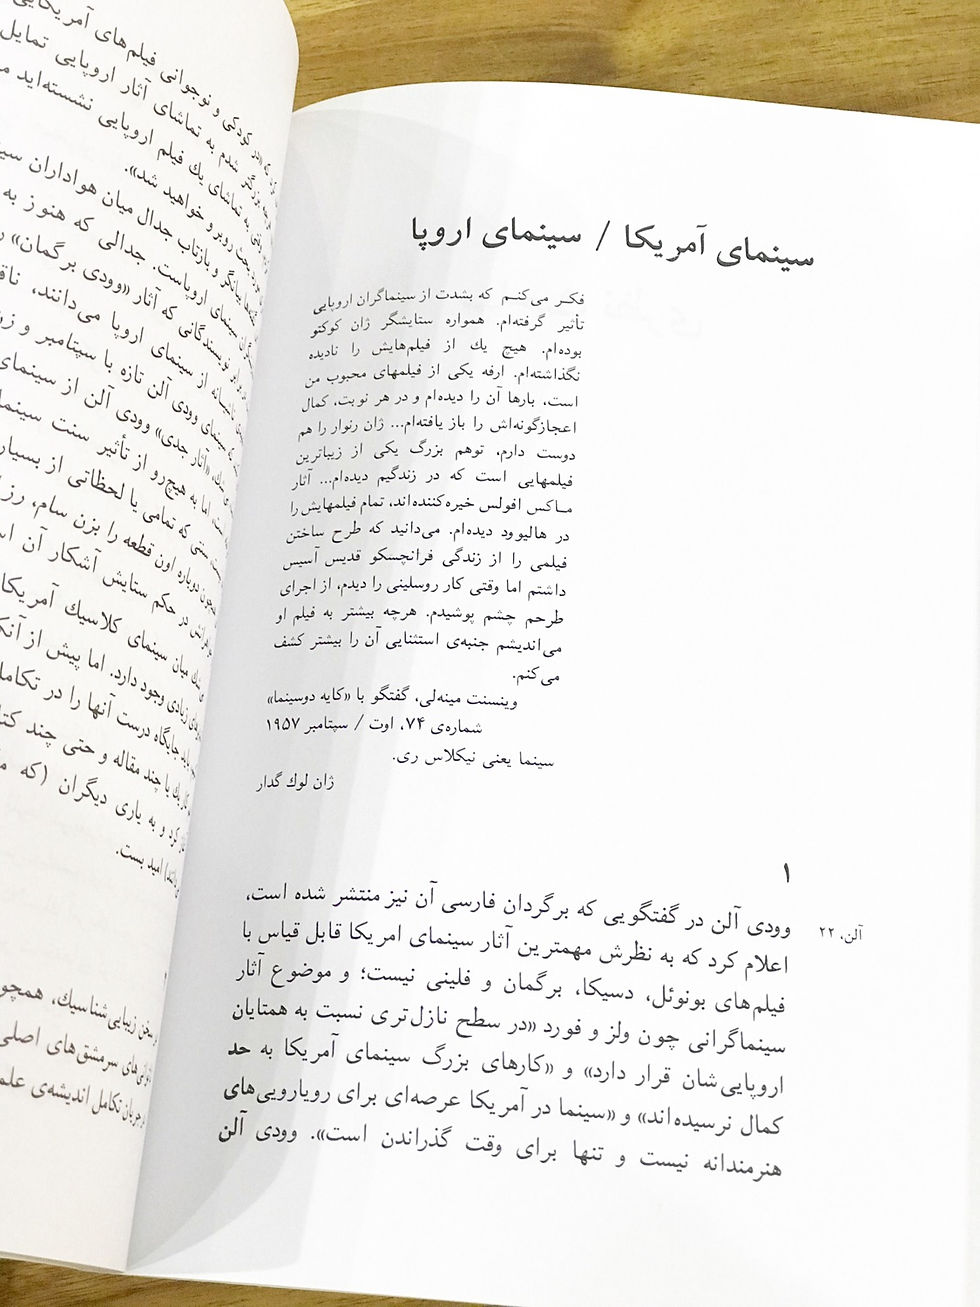 سینمای آمریکا / سینمای اروپا
فکر می‌کنم که بشدت از سینماگران اروپایی
تأثیر گرفته‌ام. همواره ستایشگر ژان کوکتو
بوده‌ام. هیچ یك از فیلم‌هایش را نادیده
نگذاشته‌ام. ارفه یکی از فیلمهای محبوب من
است، بارها آن را دیده‌ام و در هر نوبت، کمال
اعجازگونه‌اش را باز یافته‌ام... ژان رنوار را هم
دوست دارم، توهم بزرگ یکی از زیباترین
فیلمهایی است که در زندگیم دیده‌ام... آثار
ماکس افولس خیره‌کننده‌اند، تمام فیلمهایش را
در هالیوود دیده‌ام. می‌دانید که طرح ساختن
فیلمی را از زندگی فرانچسکو قدیس آسیس
داشتم اما وقتی کار روسلینی را دیدم، از اجرای
طرحم چشم پوشیدم. هرچه بیشتر به فیلم او
می‌اندیشم جنبه‌ی استثنایی آن را بیشتر کشف
می‌کنم.
وینسنت مینه‌لی، گفتگو با «کایه دوسینما»
شماره‌ی ۷۴، اوت / سپتامبر ۱۹۵۷
سینما یعنی نیکلاس ری.
ژان لوك گدار
۱
وودی آلن در گفتگویی که برگردان فارسی آن نیز منتشر شده است،
آلن، ۲۲
اعلام کرد که به نظرش مهمترین آثار سینمای امریکا قابل قیاس با
فیلم‌های بونوئل، دسیکا، برگمان و فلینی نیست؛ و موضوع آثار
سینماگرانی چون ولز و فورد «در سطح نازل‌تری نسبت به همتایان
اروپایی‌شان قرار دارد» و «کارهای بزرگ سینمای آمریکا به حد
کمال نرسیده‌اند» و «سینما در آمریکا عرصه‌ای برای رویارویی‌های
هنرمندانه نیست و تنها برای وقت گذراندن است». وودی آلن
در کودکی و نوجوانی فیلم‌های آمریکایی
شدم به تماشای آثار اروپایی تمایل
به تماشای یك فیلم اروپایی نشسته‌اید
روبرو خواهید شد».
بیانگر و بازتاب جدال میان هواداران
سینمای اروپاست. جدالی که هنوز به
نویسندگانی که آثار «وودی برگمان»
از سینمای اروپا می‌دانند،
سینمای وودی آلن تازه با سپتامبر و
«آثار جدی» وودی آلن از سینمای
اما به هیچ‌رو از تأثیر سنت
که تمامی یا لحظاتی از بسیار
دوباره اون قطعه را بزن سام، رز
در حکم ستایش آشکار آن
میان سینمای کلاسیك آمریکا
زیادی وجود دارد. اما پیش از آنکه
باید جایگاه درست آنها را در تکامل
یا چند مقاله و حتی چند
کرد و به یاری دیگران (که
امید بست.
سخن زیبایی‌شناسیك، همچو
سرمشق‌های اصلی
جریان تکامل اندیشه‌ی